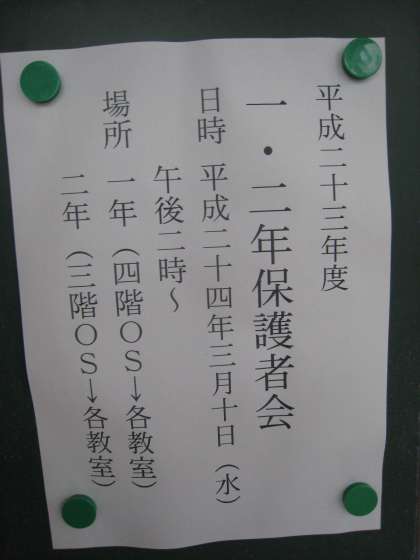 平成二十三年度
一・二年保護者会
日時 平成二十四年三月十日（水）
午後二時～
場所 一年（四階ＯＳ→各教室）
二年（三階ＯＳ→各教室）